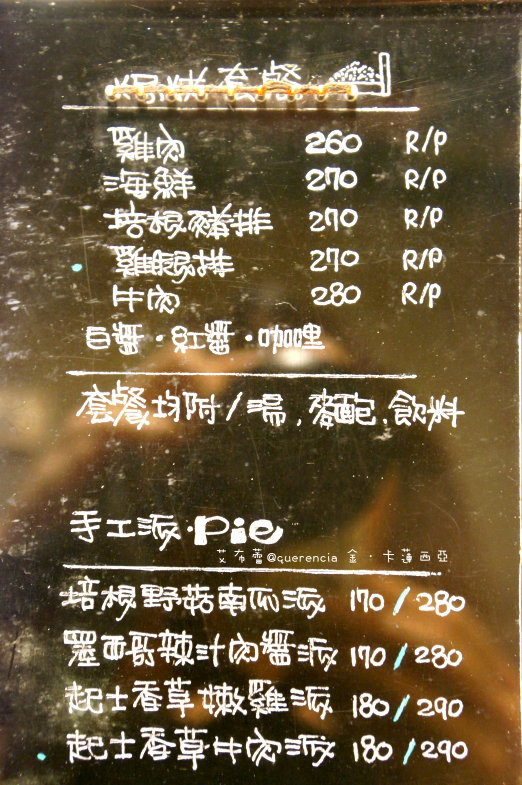 焗烤套餐
雞肉 260 R/P
海鮮 270 R/P
培根豬排 270 R/P
雞腿排 270 R/P
牛肉 280 R/P
白醬·紅醬·咖哩
套餐均附/湯,麵包,飲料
手工派·Pie
艾布蕾@querencia 金·卡蓮西亞
培根野菇南瓜派 170/280
墨西哥辣汁肉醬派 170/280
起士香草嫩雞派 180/290
起士香草牛肉派 180/290